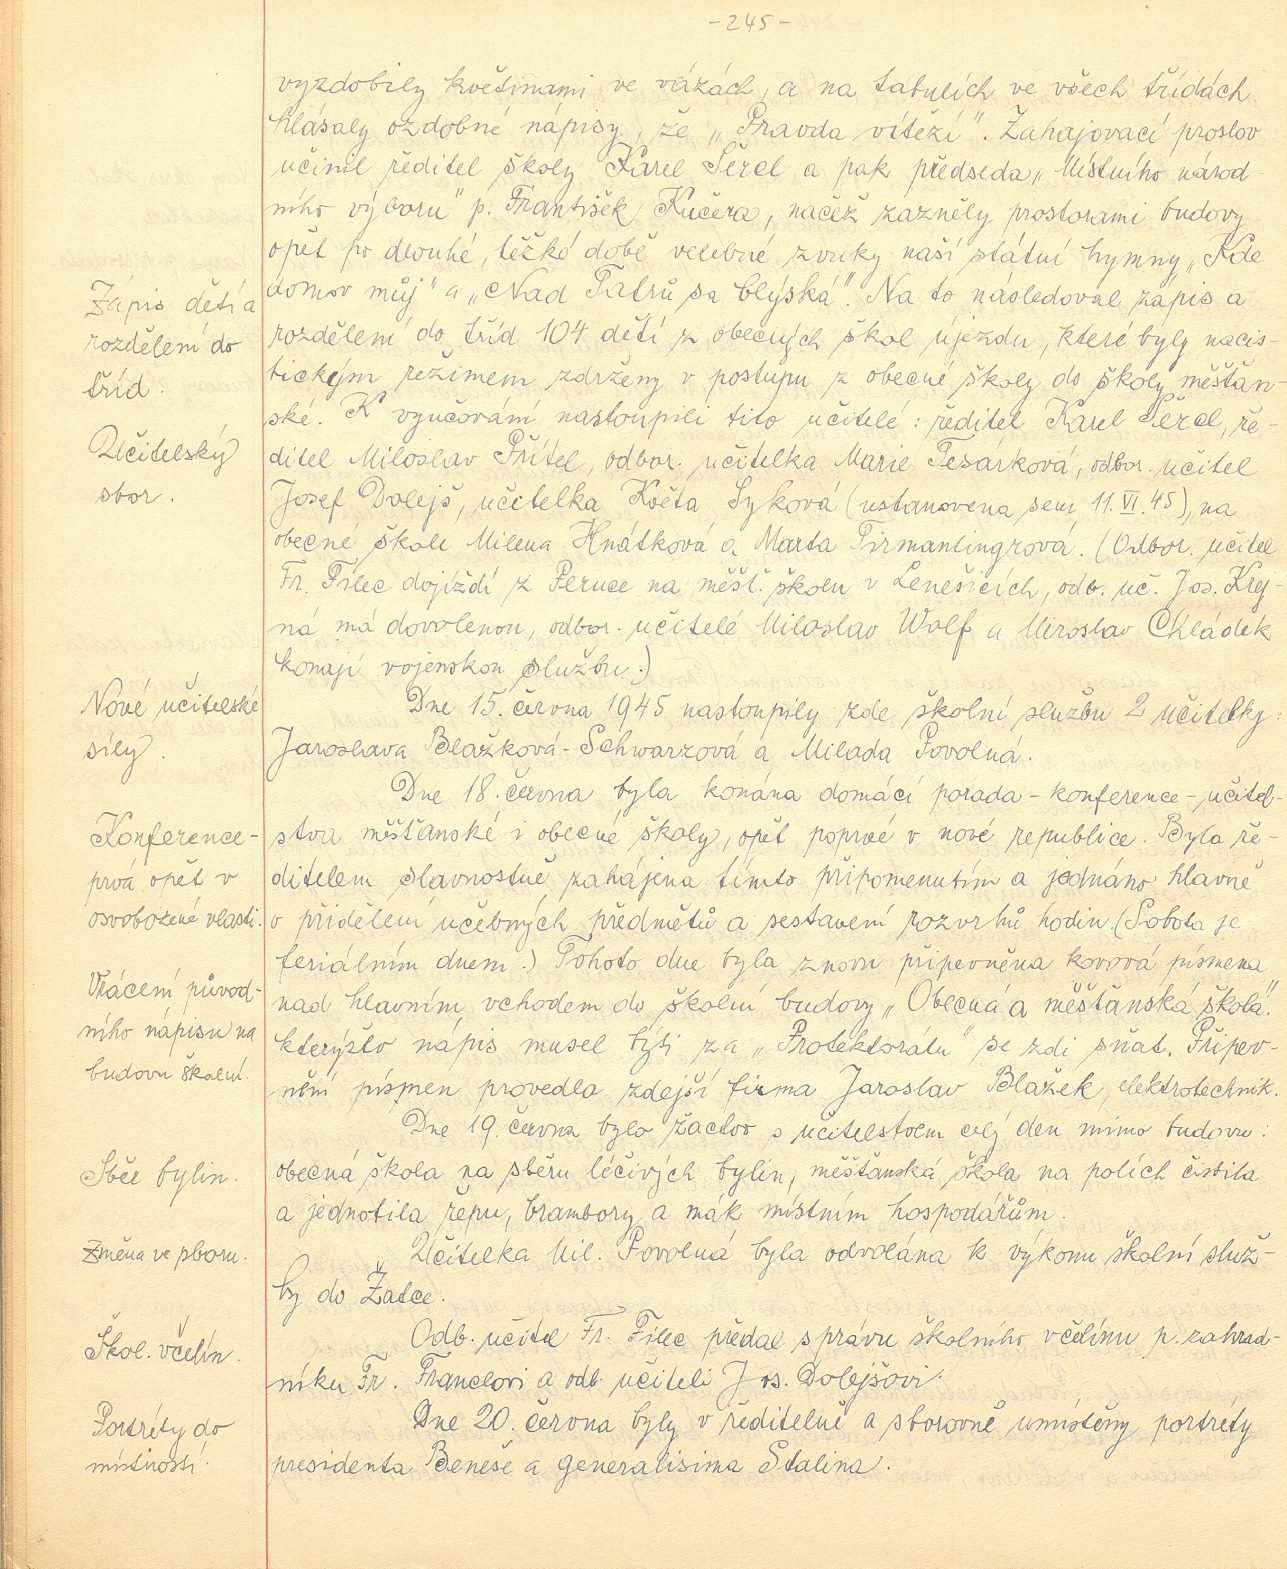 -245-
vyzdobily květinami ve vázách, a na tabulích ve všech třídách
hlásaly ozdobné nápisy, že „Pravda vítězí". Zahajovací proslov
učinil ředitel školy Karel Šercl a pak předseda „Místního národ-
ního výboru" p. František Kučera, načež zazněly prostorami budovy
opět po dlouhé, těžké době velebné zvuky naší státní hymny „Kde
domov můj" a „Nad Tatrů sa blýská". Na to následoval zápis a
rozdělení do tříd 104 dětí z obecných škol újezdu, které byly nacis-
tickým režimem zdrženy v postupu z obecné školy do školy měšťan-
ské. K vyučování nastoupili tito učitelé: ředitel Karel Šercl, ře-
ditel Miloslav Přítel, odbor. učitelka Marie Tesárková, odbor. učitel
Josef Dolejš, učitelka Květa Syková (ustanovena sem 11.VI.45), na
obecné škole Milena Hnátková a Marta Tirmantingrová. (Odbor. učitel
Fr. Fílec dojíždí z Peruce na měšť. školu v Lenešicích, odb. uč. Jos. Krej-
ná má dovolenou, odbor. učitelé Miloslav Wolf a Miroslav Chládek
konají vojenskou službu.)
Dne 15. června 1945 nastoupily zde školní službu 2 učitelky:
Jaroslava Blažková-Schwarzová a Milada Povolná.
Dne 18. června byla konána domácí porada - konference - učitel-
stva měšťanské i obecné školy, opět poprvé v nové republice. Byla ře-
ditelem slavnostně zahájena tímto připomenutím a jednáno hlavně
o přidělení učebných předmětů a sestavení rozvrhů hodin. (Sobota je
feriálním dnem.) Tohoto dne byla znovu připevněna kovová písmena
nad hlavním vchodem do školní budovy „Obecná a měšťanská škola",
kterýžto nápis musel býti za „Protektorátu" se zdi sňat. Připev-
nění písmen provedla zdejší firma Jaroslav Blažek, elektrotechnik.
Dne 19. června bylo žactvo s učitelstvem celý den mimo budovu:
obecná škola na sběru léčivých bylin, měšťanská škola na polích čistila
a jednotila řepu, brambory a mák místním hospodářům.
Učitelka Mil. Povolná byla odvolána k výkonu školní služ-
by do Žatce.
Odb. učitel Fr. Fílec předal správu školního včelínu p. zahrad-
níku Fr. Franclovi a odb. učiteli Jos. Dolejšovi.
Dne 20. června byly v ředitelně a sborovně umístěny portréty
presidenta Beneše a generalisima Stalina.
Zápis dětí a
rozdělení do
tříd.
Učitelský
sbor.
Nové učitelské
síly.
Konference -
prvá opět v
osvobozené vlasti.
Vrácení původ-
ního nápisu na
budovu školní.
Sběr bylin.
Změna ve sboru.
Škol. včelín.
Portréty do
místností.